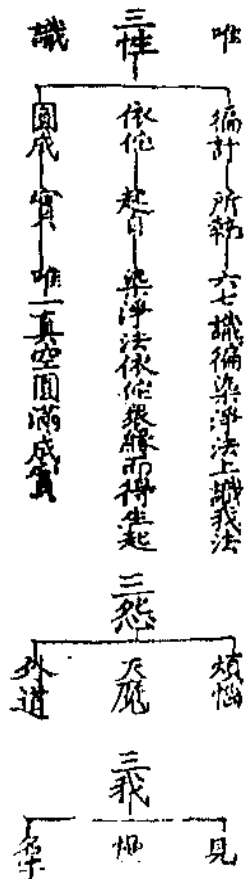 唯識
三性
徧計—所執—六七識徧染淨法上識我法
依佗—起自—染淨法依佗眾緣而得生起
圓成—實—唯一真空圓滿成實
三怨
煩惱
天魔
外道
三我
見
慢